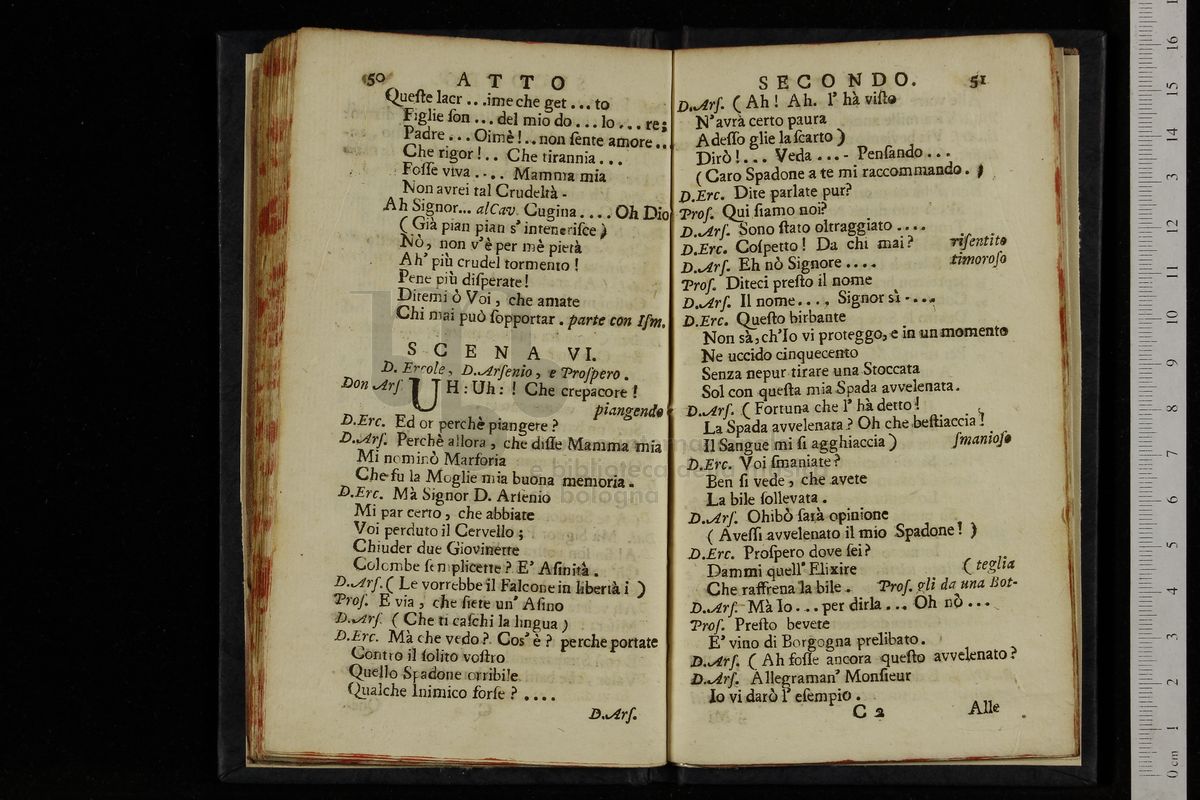 50 ATTO
Queſte lacr . . .ime che get . . . to
Figlie ſon . . . del mio do . . . lo . . . re;
Padre . . . Oimè! . . non ſente amore . . .
Che rigor! . . Che tirannia . . .
Foſſe viva . . . . Mamma mia
Non avrei tal Crudeltà -
Ah Signor... al Cav. Cugina . . . . Oh Dio
( Già pian pian s' inteneriſce )
Nò, non v'è per mè pietà
Ah' più crudel tormento !
Pene più diſperate!
Ditemi ò Voi, che amate
Chi mai può ſopportar . parte con Iſm.
SCENA VI.
D. Ercole, D. Arſenio, e Proſpero.
Don Arſ. UH : Uh : ! Che crepacore !
piangendo
D.Erc. Ed or perchè piangere ?
D.Arſ. Perchè allora, che diſſe Mamma mia
Mi nominò Marforia
Che fu la Moglie mia buona memoria.
D.Erc. Mà Signor D. Arſenio
Mi par certo, che abbiate
Voi perduto il Cervello ;
Chiuder due Giovinette
Colombe ſemplicette ? E' Aſinità.
D.Arſ. ( Le vorrebbe il Falcone in libertà i )
Proſ. E via, che ſiete un' Aſino
D.Arſ. ( Che ti caſchi la lingua )
D.Erc. Mà che vedo ? Cos' è ? perche portate
Contro il ſolito voſtro
Quello Spadone orribile
Qualche Inimico forſe ? . . . .
D.Arſ.
SECONDO. 51
D.Arſ. ( Ah ! Ah. l' hà viſto
N'avrà certo paura
Adeſſo glie la ſcarto )
Dirò! . . . Veda . . . - Penſando . . .
( Caro Spadone a te mi raccommando. )
D.Erc. Dite parlate pur?
Proſ. Qui ſiamo noi?
D.Arſ. Sono ſtato oltraggiato . . . .
D.Erc. Coſpetto ! Da chi mai ? riſentito
D.Arſ. Eh nò Signore . . . . timoroſo
Proſ. Diteci preſto il nome
D.Arſ. Il nome . . . , Signor sì - . . .
D.Erc. Queſto birbante
Non sà, ch'Io vi proteggo, e in un momento
Ne uccido cinquecento
Senza nepur tirare una Stoccata
Sol con queſta mia Spada avvelenata.
D.Arſ. ( Fortuna che l' hà detto !
La Spada avvelenata ? Oh che beſtiaccia !
Il Sangue mi ſi agghiaccia ) ſmanioſo
D.Erc. Voi ſmaniate ?
Ben ſi vede, che avete
La bile ſollevata .
D.Arſ. Ohibò ſarà opinione
( Aveſſi avvelenato il mio Spadone ! )
D.Erc. Proſpero dove ſei ?
Dammi quell' Elixire ( teglia
Che raffrena la bile . Proſ. gli da una Bot-
D.Arſ. Mà Io . . . per dirla . . . Oh nò . . .
Proſ. Preſto bevete
E' vino di Borgogna prelibato.
D.Arſ. ( Ah foſſe ancora queſto avvelenato ?
D.Arſ. Allegraman' Monſieur
Io vi darò l' eſempio .
C 2 Alle